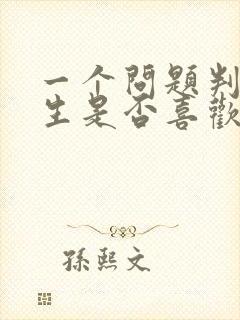 一个問題判
生是否喜歡
孫熙文